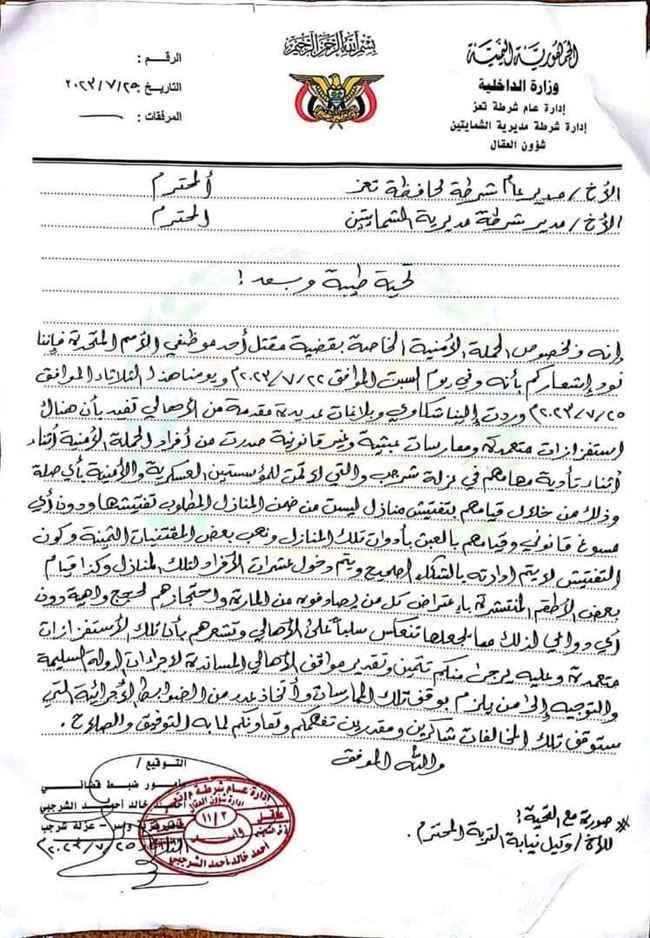 بسم الله الرحمن الرحيم
الجمهورية اليمنية
وزارة الداخلية
إدارة عام شرطة تعز
إدارة شرطة مديرية الشمايتين
شؤون العقال
الرقم :
التاريخ ٢٠٢٣/٧/٢٥
المرفقات :
الأخ / مدير عام شرطة محافظة تعز المحترم
الأخ / مدير شرطة مديرية الشمايتين المحترم
تحية طيبة وبعد !
إنه وبخصوص الحملة الأمنية الخاصة بقضية مقتل أحد موظفي الأمم المتحدة فإننا
نود إشعاركم بأنه وفي يوم السبت الموافق ٢٠٢٣/٧/٢٢م ويومنا هذا الثلاثاء الموافق
٢٠٢٣/٧/٢٥م وردت إلينا شكاوي وبلاغات عديدة مقدمة من الأهالي تفيد بأن هناك
استفزازات متعمدة وممارسات عبثية وغير قانونية صدرت من أفراد الحملة الأمنية أثناء
أثناء تأدية مهامهم في عزلة شرجب والتي لا تمت للمؤسستين العسكرية والأمنية بأي صلة
وذلك من خلال قيامهم بتفتيش منازل ليست من ضمن المنازل المطلوب تفتيشها ودون أي
مسوغ قانوني وقيامهم بالعبث بأدوات تلك المنازل ونهب بعض المقتنيات الثمينة وكون
التفتيش لا يتم أدارته بالشكل الصحيح ويتم دخول عشرات الأفراد لتلك المنازل وكذا قيام
بعض الأطقم المنتشرة بإعتراض كل من يصادفونه من المارة واحتجازهم لحجج واهية دون
أي دواعي لذلك مما يجعلها تنعكس سلباً على الأهالي وتشعرهم بأن تلك الأستفزازات
متعمدة وعليه يرجى منكم تثمين وتقدير مواقف الأهالي المساندة لإجراءات الدولة السليمة
والتوجيه إلى من يلزم بوقف تلك الممارسات وأتخاذ بدر من الضوابط الأجرائية التي
ستوقف تلك المخالفات شاكرين ومقدرين تفهمكم وتعاونكم لما به التوفيق والصلاح .
والله الموفق
التوقيع /
مأمور ضبط قضائي
خالد أحمد الشرجبي
عزلة شرجب
٢٠٢٣/٧/٢٥م
إدارة عام شرطة م/تعز
إدارة شؤون العقال
١١/٢
أحمد خالد أحمد الشرجبي
* صورة مع التحية !
للأخ / وكيل نيابة التربة المحترم .